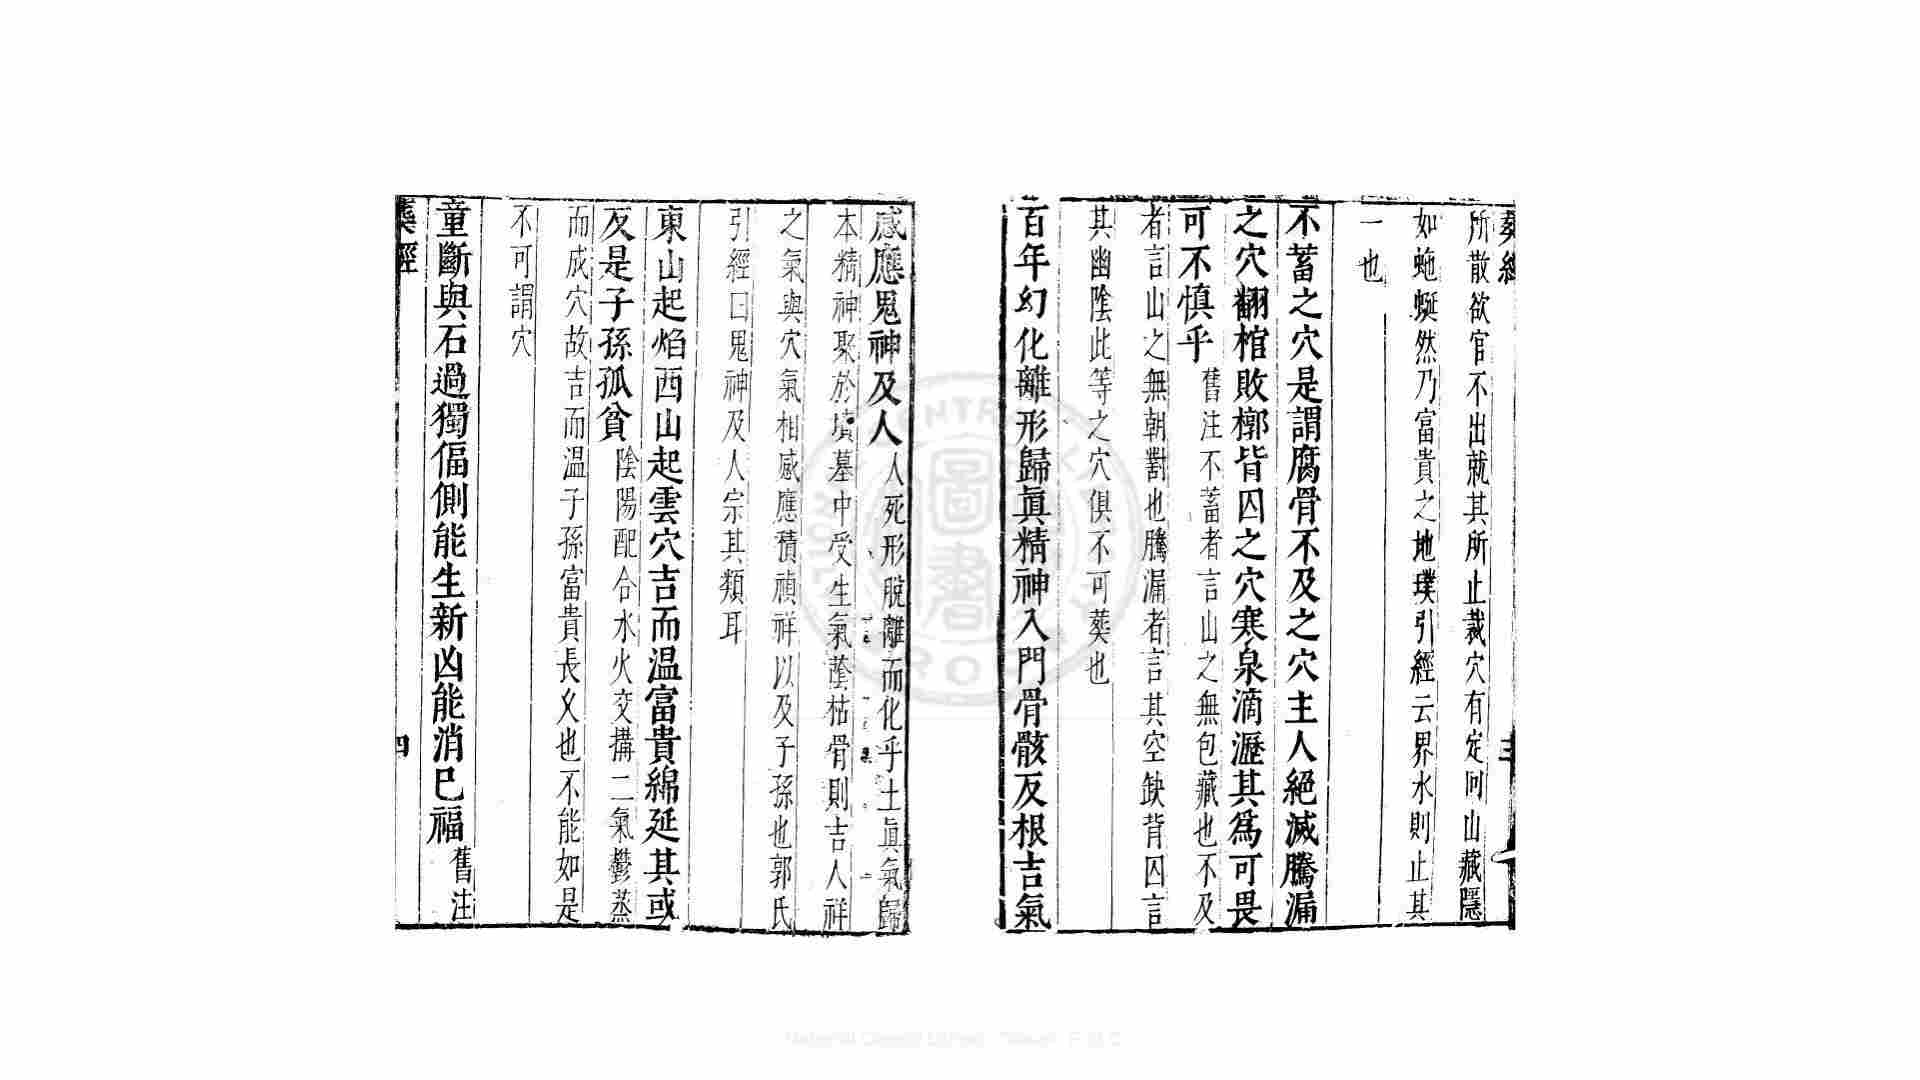 葬經
三
所散欲官不出就其所止裁穴有定向山藏隱
如虵蜒然乃富貴之地璞引經云界水則止其
一也
不蓄之穴是謂腐骨不及之穴主人絕滅騰漏
之穴翻棺敗槨背囚之穴寒泉滴瀝其為可畏
可不慎乎舊注不蓄者言山之無包藏也不及
者言山之無朝對也騰漏者言其空缺背囚言
其幽陰此等之穴俱不可葬也
百年幻化離形歸眞精神入門骨骸反根吉氣
感應鬼神及人人死形脫離而化乎土眞氣歸
本精神聚於墳墓中受生氣蔭枯骨則吉人祥
之氣與穴氣相感應積禎祥以及子孫也郭氏
引經曰鬼神及人宗其類耳
東山起焰西山起雲穴吉而温富貴綿延其或
反是子孫孤貧陰陽配合水火交搆二氣鬱蒸
而成穴故吉而温子孫富貴長乂也不能如是
不可謂穴
童斷與石過獨偪側能生新凶能消巳福舊注
葬經
四
National Central Library, Taiwan, R.O.C